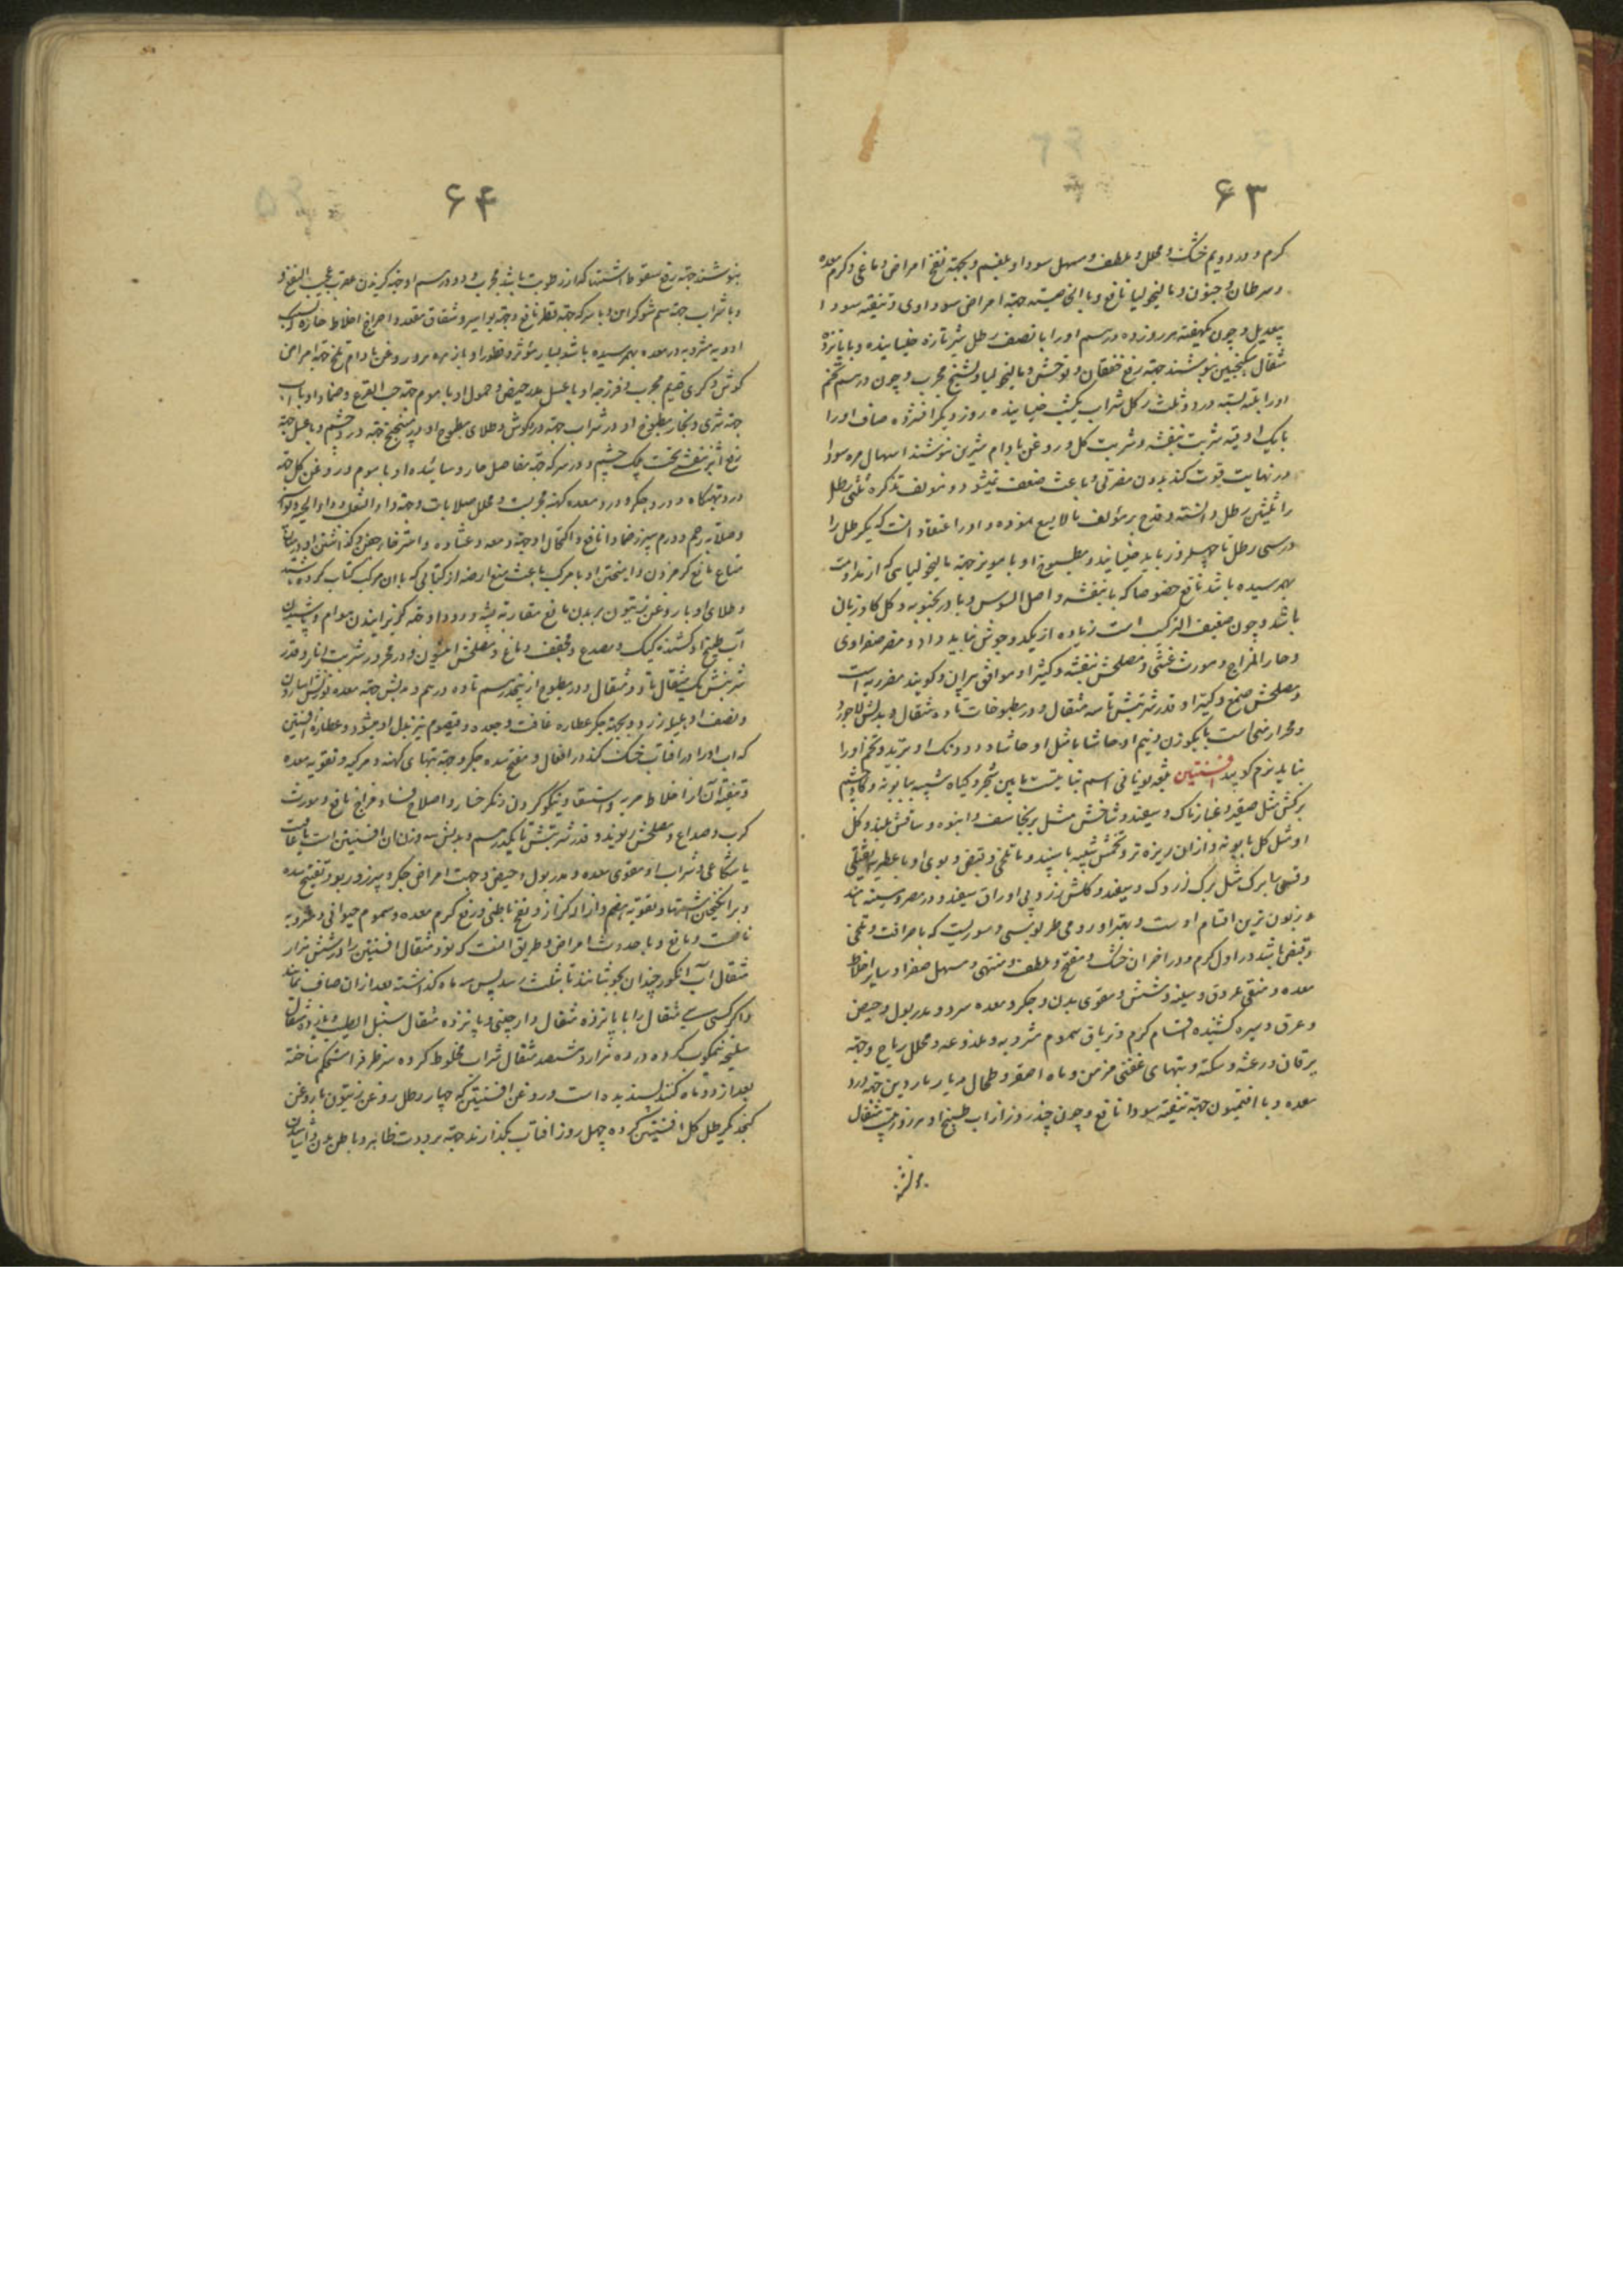 ۶۳
گرم و در دویم خشک و محلل و ملطف و مسهل سودا و بلغم و بجهة نفخ امراض دماغی و گرم معده
و سرطان و جنون و مالیخولیا نافع و بالخاصیته جهة امراض سوداوی و تنقیه سودا
بیعدیل و چون یکهفته هر روز ده درهم او را با نصف رطل شیر تازه خیسانیده و با پانزده
مثقال سکنجبین بنوشند جهة رفع خفقان و توحش و مالیخولیا و تشنج مجرب و چون درهم تخم
او را بسته در دو ثلث رطل شراب یکشب خیسانیده روز دیگر افشرده صاف او را
با یک اوقیه شربت بنفشه و شربت گل و روغن بادام شیرین بنوشند اسهال مره سودا
در نهایت قوت کند بدون مضرتی و باعث ضعف نمیشود و مولف تذکره ثلثی رطل
را ثلثین رطل دانسته و قدح بر مؤلف مالایسع نموده و او را اعتقاد آنست که یکرطل را
در سی رطل تا چهلروز باید خیسانید و مطبوخ او با مویز جهة مالیخولیایی که از ندامت
بهم رسیده باشد نافع خصوصا که با بنفشه و اصل السوس و بادرنجبویه و گل گاوزبان
باشد و چون ضعیف الترکیب است زیاده از یکدو جوش نباید داد و مضر صفراوی
و حار المزاج و مورث غشی و مصلحش بنفشه و کتیرا و موافق پیران و گویند مضر ریه است
و مصلحش صمغ و کتیرا و قدر شربتش تا سه مثقال و در مطبوخات تا ده مثقال و بدلش لاجورد
و حجر ارمنی است یا یکوزن و نیم او حاشا یا مثل او حاشا و دو دانک او تربد و تخم او را
نباید نرم کوبید افسنتین بلغه یونانی اسم نباتیست مابین شجر و گیاه شبیه ببابونه و گاوچشم
برگش مثل صعتر و غبارناک و سفید و شاخش مثل برنجاسف و انبوه و ساقش بلند و گل
او مثل گل بابونه و از آن ریزه تر و تخمش شبیه باسپند و با تلخی و قبض و بوی او با عطریه و ثقیلی
و قسمی را برگ مثل برگ زردک و سفید و گلش زرد بی اوراق سفید و در مصر و سینه نامند
و زبون ترین اقسام اوست و بهتر او رومی طرسوسی و سوریست که با حرافت و تلخی
و قبض باشد در اول گرم و در آخر آن خشک و مفتح و ملطف و مشهی و مسهل صفرا و سایر اخلاط
معده و منقی عروق و سینه و شش و مقوی بدن و جگر و معده سرد و مدر بول و حیض
و عرق و شیر و کشنده اقسام کرم و تریاق سموم مشروبه و ملذوعه و محلل ریاح و جهة
یرقان و رعشه و سکته و تبهای عفنی مزمن و ماء اصفر و طحال و با ریاردین جهة درد
معده و با افتیمون جهة تنقیه سودا نافع و چون چند روز از آب طبیخ او هر روز بیست مثقال
بنوشند
۶۴
بنوشند جهة رفع سقوط اشتها که از رطوبت باشد مجرب و دو درهم او جهة گزیدن عقرب عجیب النفع و
و با شراب جهة سم شوکران و با سرکه جهة فطر نافع و جهة بواسیر و شقاق مقعد و اخراج اخلاط حاره که بسبب
ادویه مشروبه در معده بهم رسیده باشد بسیار مؤثر و قطور او با زهره بز و روغن بادام تلخ جهة امراض
گوش و کری قدیم مجرب و فرزجه او با عسل مدر حیض و حمول او با موم جهة حب القرع و ضماد او با آب
جهة شری و بخار مطبوخ او در شراب جهة درد گوش و طلای مطبوخ او در میفختج جهة درد چشم و با عسل جهة
رفع اثر بنفشی تحت پلک چشم و در سرکه جهة مفاصل حار و سائیده او با موم و روغن گل جهة
درد تهیگاه و درد جگر و درد معده کهنه مجربست و محلل صلابات و جهة داء الثعلب و داء الحیه و لقوه
و صلابه رحم و ورم سپرز ضمادا نافع و اکتحال او جهة دمعه و غشاوه و استرخاء جفن و گذاشتن او در میان
متاع مانع کرم زدن و آمیختن او با مرکب باعث منع ارضه از کتابی که با آن مرکب کتاب کرده باشند
و طلای او با روغن زیتون بر بدن مانع مقاربه پشه و دود او جهة گریزانیدن هوام و پاشیدن
آب طبیخ او کشنده کیک و مصدع و مجفف دماغ و مصلحش انیسون و در محرور شربت انار و قدر
شربتش یک مثقال تا دو مثقال و در مطبوخ از پنجدرهم تا ده درهم و بدلش جهة معده بوزنش اسارون
و نصف او هلیله زرد و بجهة جگر عصاره غافث و جعده و قیصوم نیز بدل او میشود و عصاره افسنتین
که آب او را در آفتاب خشک کنند در افعال و مفتح سده جگر و جهة تبهای کهنه و مرکبه و تقویه معده
و تنقیه آن از اخلاط مریه و استسقا و نیکو کردن رنگ رخسار و اصلاح فساد مزاج نافع و مورث
کرب و صداع و مصلحش ریوند و قدر شربتش تا یکدرهم و بدلش سه وزن آن افسنتین است یا غافث
یا شکاعی و شراب او مقوی معده و مدر بول و حیض و جهت امراض جگر و سپرز و ربو و تفتیح سده
و برانگیختن اشتها و تقویه هضم و ازاله کزاز و نفخ باطنی و رفع کرم معده و سموم حیوانی و مشروبه
نافعست و مانع و با حدوث امراض و طریق آنست که نود مثقال افسنتین را در شش هزار
مثقال آب انگور چندان بجوشانند تا بثلث رسد پس سه ماه گذاشته بعد از آن صاف نمایند
و اگر کسی سی مثقال را با پانزده مثقال دارچینی و پانزده مثقال سنبل الطیب و پانزده مثقال
سلیخه نیمکوب کرده در ده هزار و ششصد مثقال شراب مخلوط کرده سر ظرف را مستحکم ساخته
بعد از دو ماه کنند پسندیده است و روغن افسنتین که چهار رطل روغن زیتون یا روغن
کنجد یکرطل گل افسنتین کرده چهل روز آفتاب بگذارند جهة برودت ظاهر و باطن بدن و